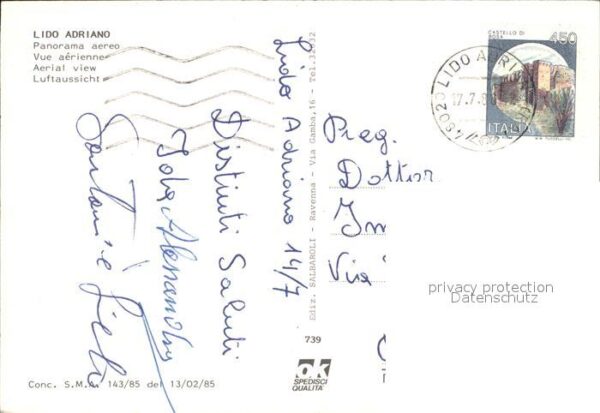 LIDO ADRIANO
Panorama aereo
Vue aérienne
Aerial view
Luftaussicht
Lido Adriano 14/7
Distinti Saluti
Conc. S.M.A. 143/85 del 13/02/85
Ediz. SALBAROLI - Ravenna - Via Gamba,16 - Tel.32932
739
ok
SPEDISCI
QUALITÀ
CASTELLO DI
ROSA
450
ITALIA
48020 LIDO ADRI
17.7.8
Preg.
Dottor
Via
privacy protection
Datenschutz